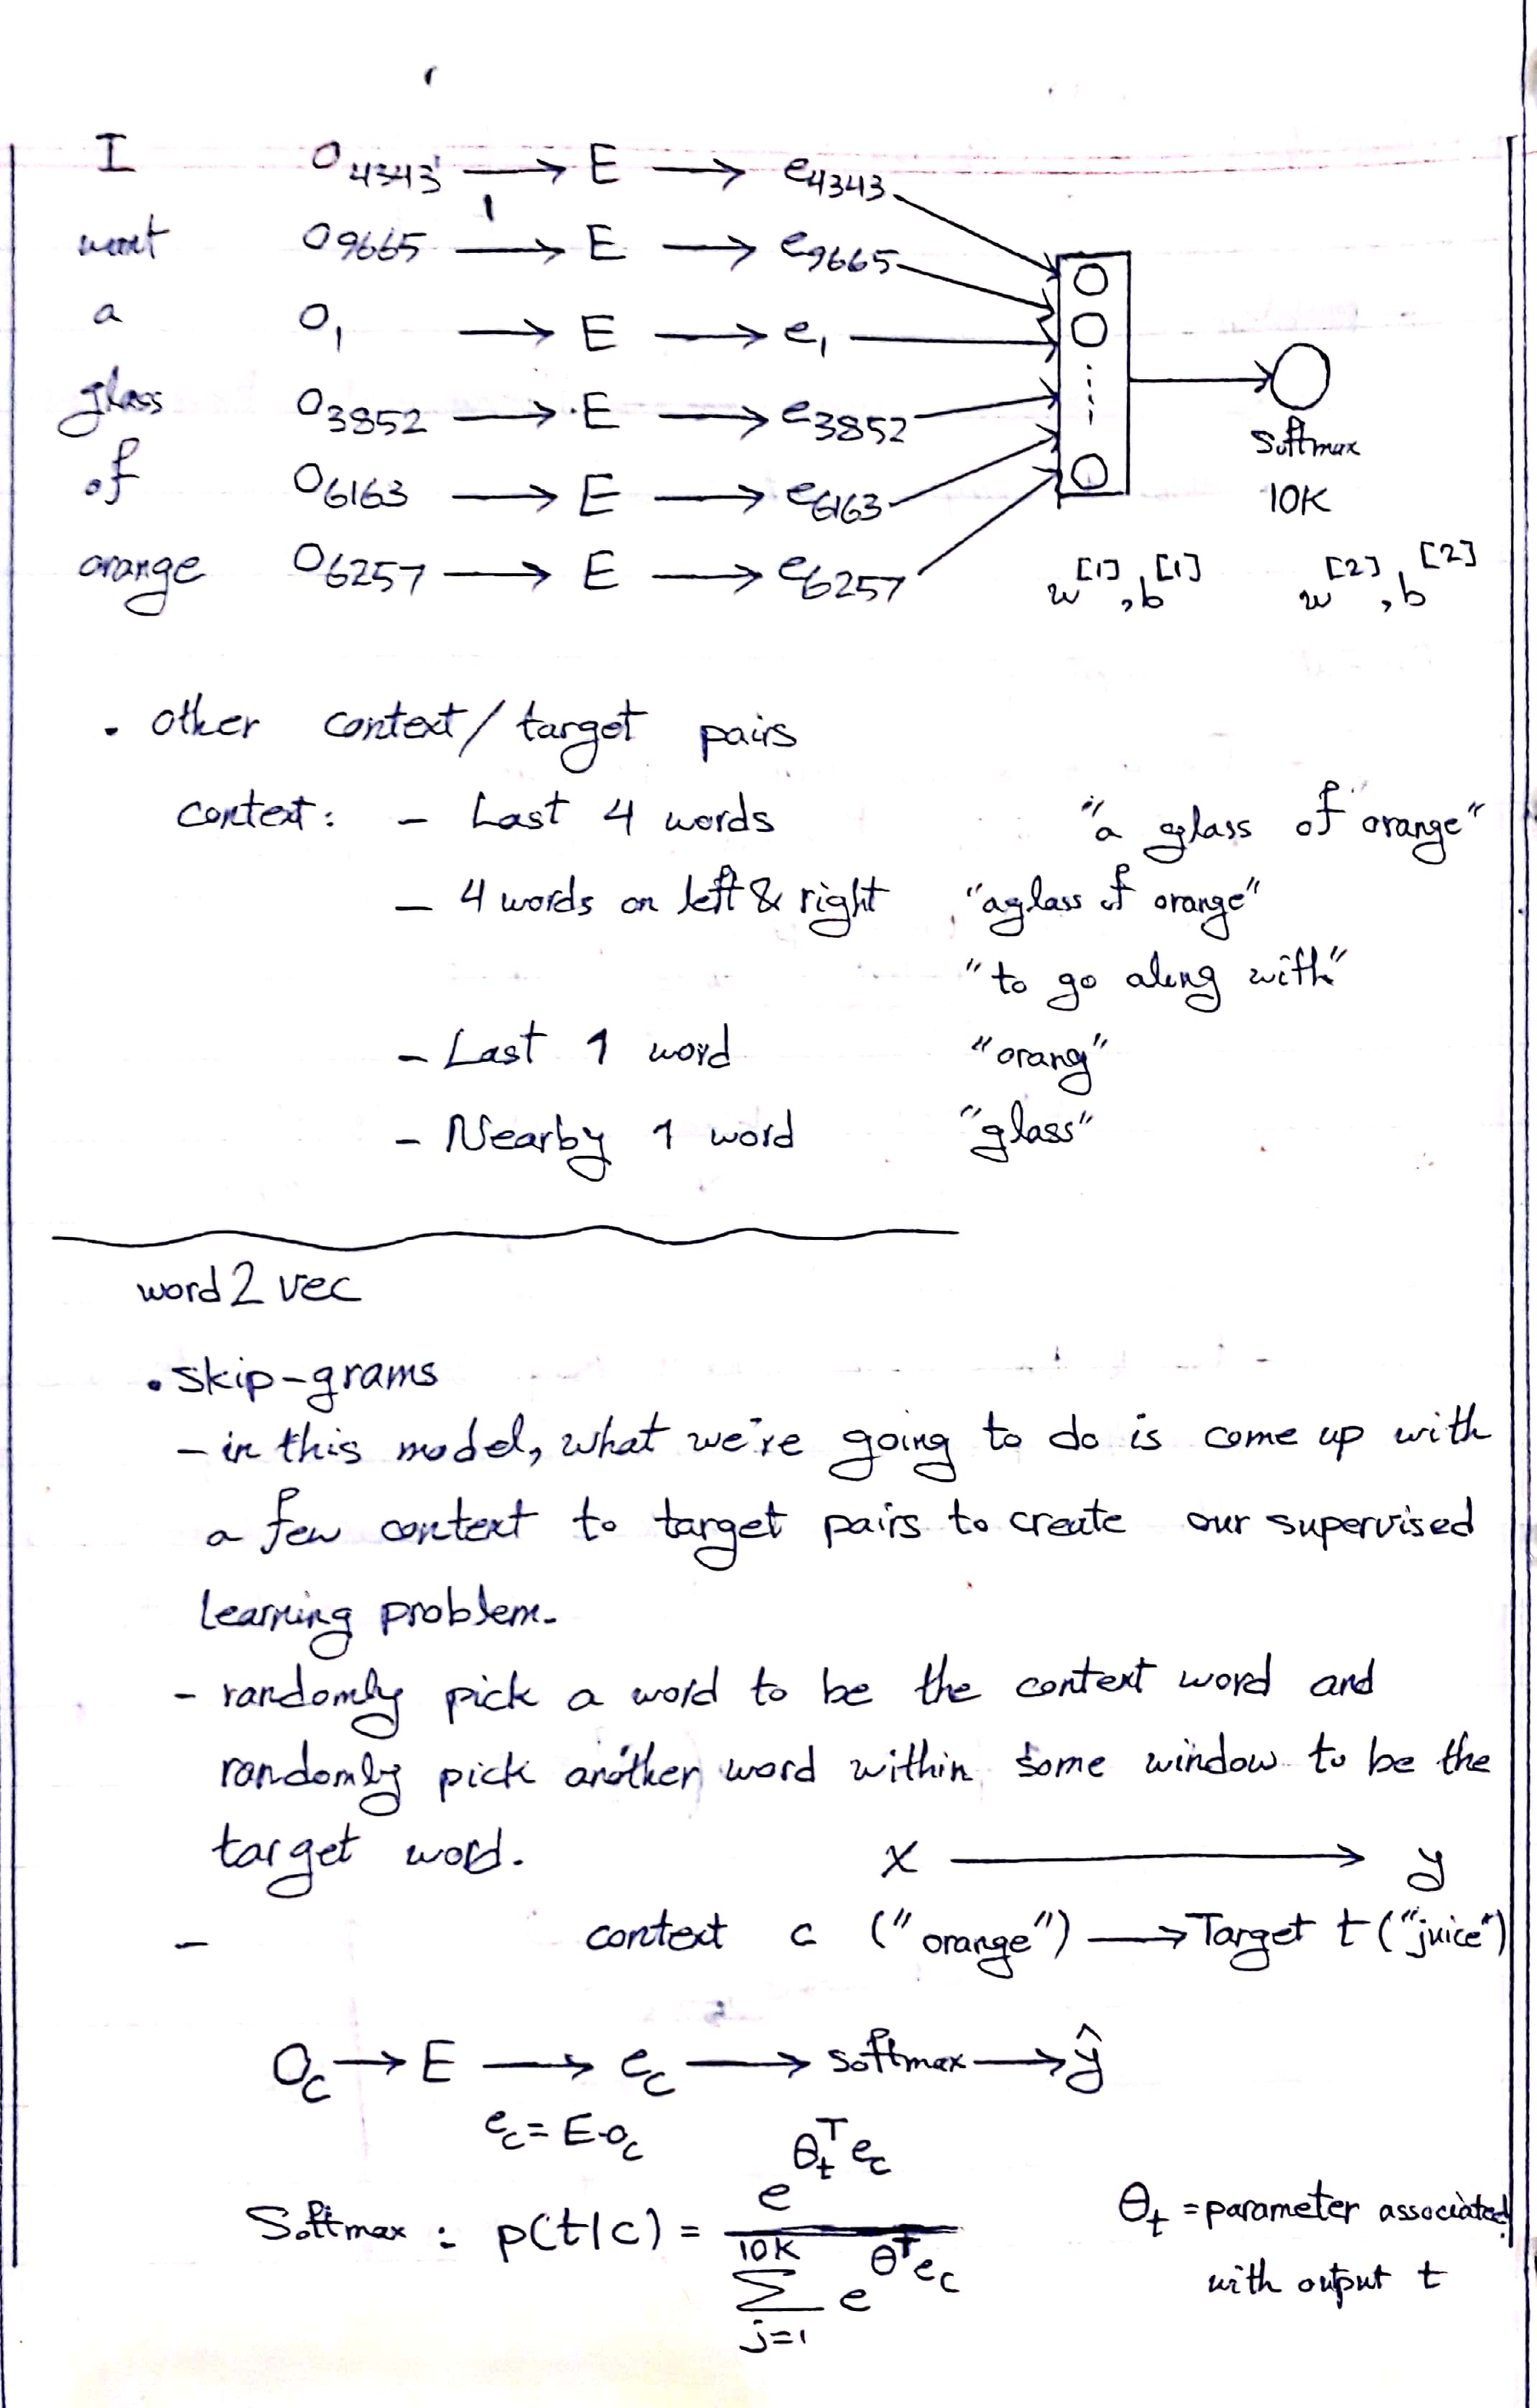 I O4343 → E → e4343
want O9665 → E → e9665
a O1 → E → e1
glass O3852 → E → e3852
of O6163 → E → e6163
orange O6257 → E → e6257
Softmax
10K
w[1], b[1] w[2], b[2]
• other context/target pairs
context: - Last 4 words "a glass of orange"
- 4 words on left & right "a glass of orange"
"to go along with"
- Last 1 word "orang"
- Nearby 1 word "glass"
word2vec
• skip-grams
- in this model, what we're going to do is come up with
a few context to target pairs to create our supervised
learning problem.
- randomly pick a word to be the context word and
randomly pick another word within some window to be the
target word. x → y
- context c ("orange") → Target t ("juice")
Oc → E → ec → softmax → ŷ
ec = E·oc
Softmax : p(t|c) = e^(θt^T ec) / Σ_{j=1}^{10K} e^(θ^T ec) θt = parameter associated
with output t